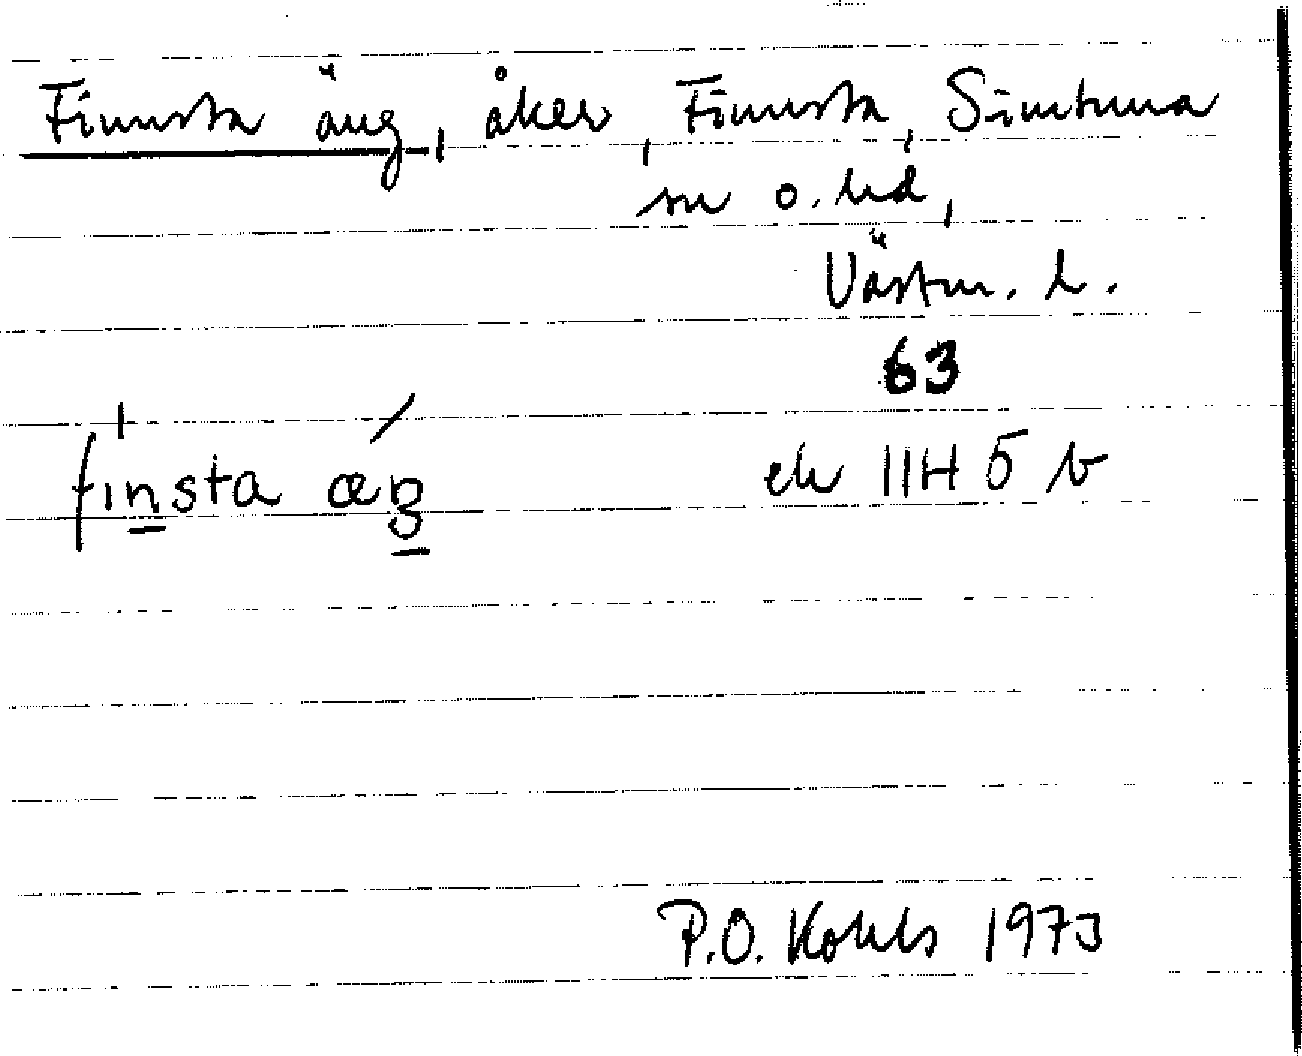 Finnsta äng, åker, Finnsta, Simtuna
sn o. hd,
Västm. l.
63
finsta æŋ
ek 11H 5 b
P.O. Kohls 1973